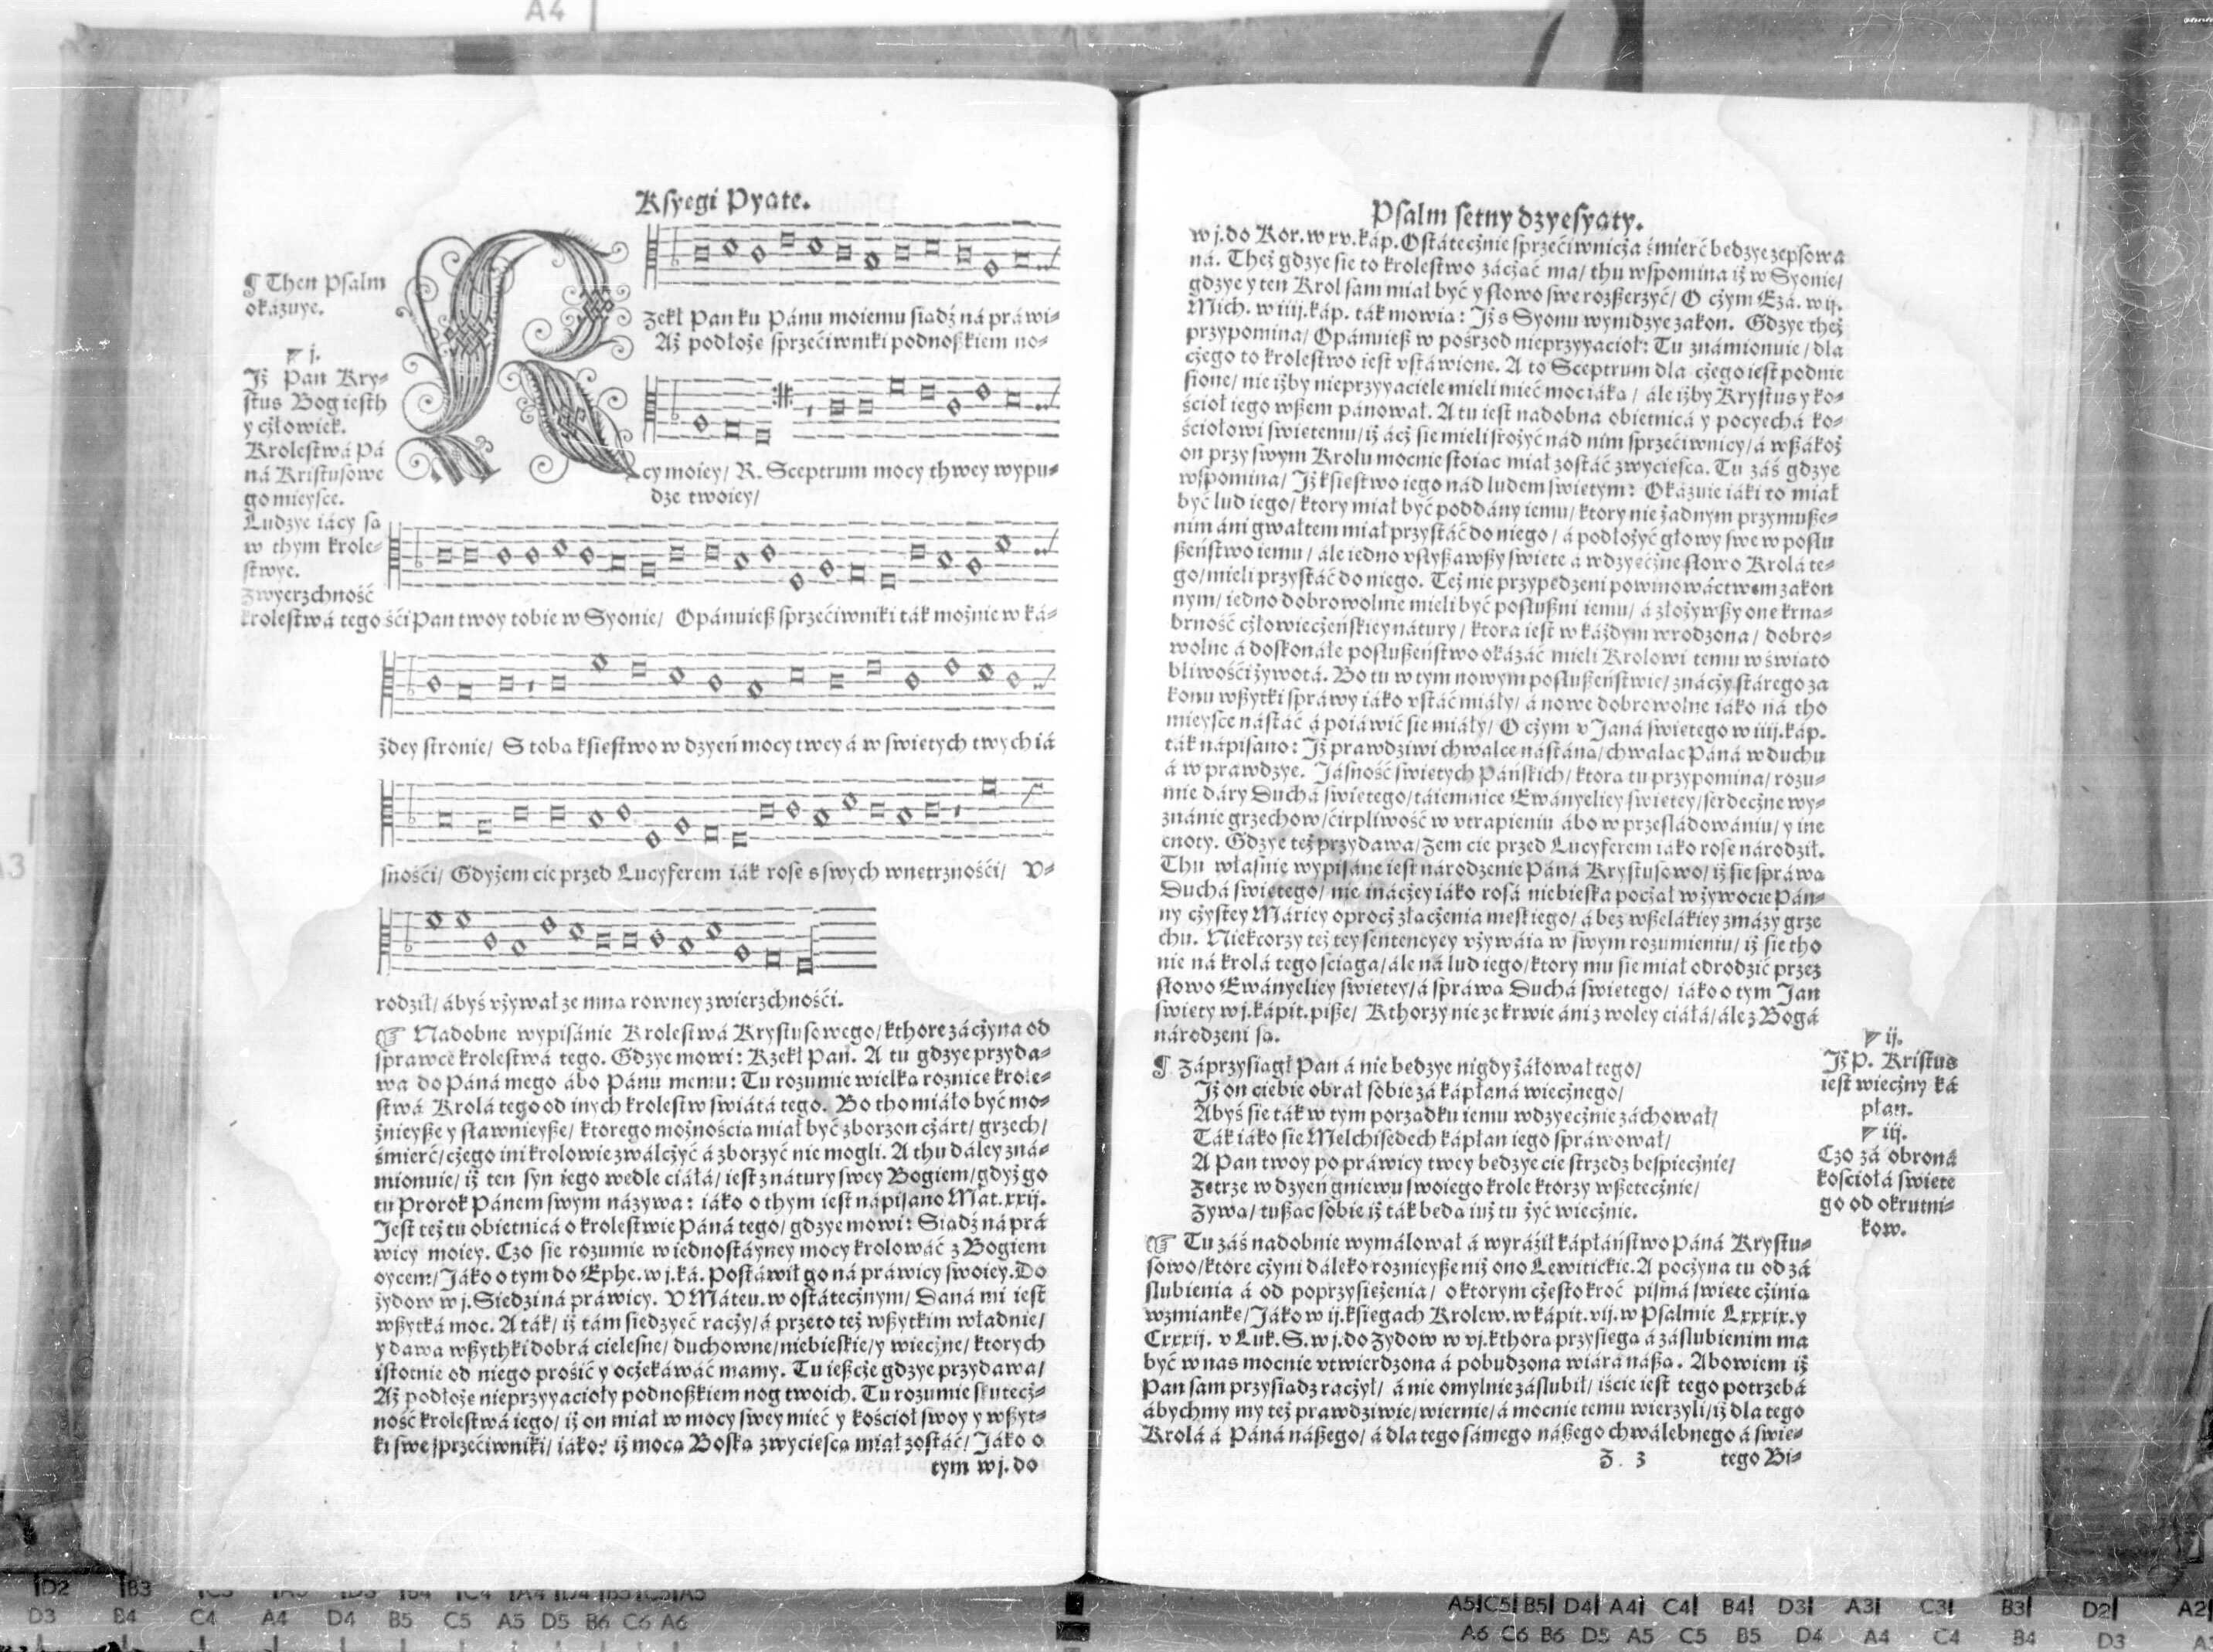 Ksyegi Pyate.
¶ Then Psalm
okázuye.
j.
Jż Pan Kry-
stus Bog iesth
y cżłowiek.
Krolestwá Pá
ná Kristusowe
go mieysce.
Ludzye iácy są
w thym krole-
stwye.
Zwyerzchność
krolestwá tego
Rzekł Pan ku Pánu moiemu siądź ná práwi-
Aż podłożę sprzećiwniki podnożkiem no-
cy moiey/ R. Sceptrum mocy thwey wypu-
dze twoiey/
śći Pan twoy tobie w Syonie/ Opánuiesz sprzećiwniki ták możnie w ká-
żdey stronie/ S tobą ksiestwo w dzyeń mocy twey á w swiętych twych iá
snośći/ Gdyżem cie przed Lucyferem iák rosę s swych wnętrznośći/ V-
rodził/ ábyś vżywał ze mną rowney zwierzchnośći.
☞ Nadobne wypisánie Krolestwá Krystusowego/ kthore zácżyna od
sprawce krolestwá tego. Gdzye mowi: Rzekł Pan. A tu gdzye przyda-
wa do Páná mego ábo Pánu memu: Tu rozumie wielką roznicę krole-
stwá Krolá tego od inych krolestw swiátá tego. Bo tho miáło być mo-
żnieysze y sławnieysze/ ktorego możnością miał być zborzon cżárt/ grzech/
śmierć/ cżego ini krolowie zwálcżyć á zborzyć nie mogli. A thu dáley zná-
mionuie/ iż ten syn iego wedle ciáłá/ iest z nátury swey Bogiem/ gdyż go
tu Prorok Pánem swym názywa: iáko o thym iest nápisano Mat. xxij.
Jest też tu obietnicá o krolestwie Páná tego/ gdzye mowi: Siądź ná prá
wicy moiey. Czo sie rozumie w iednostáyney mocy krolowáć z Bogiem
oycem/ Jáko o tym do Ephe. w j. ká. Postáwił go ná práwicy swoiey. Do
żydow w j. Siedzi ná práwicy. V Máteu. w ostátecżnym/ Daná mi iest
wszytká moc. A ták/ iż tám siedzyeć racży/ á przeto też wszytkim władnie/
y dawa wszythki dobrá cielesne/ duchowne/ niebieskie/ y wiecżne/ ktorych
istotnie od niego prosić y ocżekáwáć mamy. Tu ieszcże gdzye przydawa/
Aż podłożę nieprzyyacioły podnożkiem nog twoich. Tu rozumie skutecż-
ność krolestwá iego/ iż on miał w mocy swey mieć y kościoł swoy y wszyt-
ki swe sprzećiwniki/ iáko: iż mocą Boską zwyciescą miał zostáć/ Jáko o
tym w j. do
Psalm setny dzyesyąty.
w j. do Kor. w xv. káp. Ostátecżnie sprzećiwnicżá śmierć będzye zepsowa
ná. Też gdzye sie to krolestwo zácżąć ma/ thu wspomina iż w Syonie/
gdzye y ten Krol sam miał być y słowo swe rozszerzyć/ O cżym Ezá. w ij.
Mich. w iiij. káp. ták mowią: Jż s Syonu wynidzye zakon. Gdzye theż
przypomina/ Opánuiesz w pośrzod nieprzyyacioł: Tu známionuie/ dla
cżego to krolestwo iest vstáwione. A to Sceptrum dla cżego iest podnie
sione/ nie iżby nieprzyyaciele mieli mieć moc iáką/ ále iżby Krystus y ko-
ścioł iego wszem pánował. A tu iest nadobna obietnicá y pocyechá ko-
ściołowi swiętemu/ iż ácż sie mieli srożyć nád nim sprzećiwnicy/ á wszákoż
on przy swym Krolu mocnie stoiąc miał zostáć zwyciescą. Tu záś gdzye
wspomina/ Jż ksiestwo iego nád ludem swiętym: Okázuie iáki to miał
być lud iego/ ktory miał być poddány iemu/ ktory nie żadnym przymusze-
nim áni gwałtem miał przystáć do niego/ á podłożyć głowy swe w posłu
szeństwo iemu/ ále iedno vsłyszawszy swięte á wdzyęcżne słowo Krolá te-
go/ mieli przystáć do niego. Też nie przypędzeni powinowáctwem zakon
nym/ iedno dobrowolnie mieli być posłuszni iemu/ á złożywszy one krna-
brność cżłowiecżeńskiey nátury/ ktora iest w káżdym wrodzona/ dobro-
wolne á doskonáłe posłuszeństwo okázáć mieli Krolowi temu w świąto
bliwośći żywotá. Bo tu w tym nowym posłuszeństwie/ znácży stárego za
konu wszytki spráwy iáko vstáć miáły/ á nowe dobrowolne iáko ná tho
mieysce nástáć á poiáwić sie miáły/ O cżym v Janá swiętego w iiij. káp.
ták nápisano: Jż prawdziwi chwalce nástáną/ chwaląc Páná w duchu
á w prawdzye. Jásność swiętych Páńskich/ ktorą tu przypomina/ rozu-
mie dáry Duchá swiętego/ táiemnice Ewányeliey swiętey/ serdecżne wy-
znánie grzechow/ ćirpliwość w vtrapieniu ábo w prześládowániu/ y ine
cnoty. Gdzye też przydawa/ Żem cie przed Lucyferem iáko rosę národził.
Thu własnie wypisáne iest národzenie Páná Krystusowo/ iż sie spráwą
Duchá swiętego/ nie inácżey iáko rosá niebieska pocżął w żywocie Pán-
ny cżystey Máriey oprocż złącżenia męskiego/ á bez wszelákiey zmázy grze
chu. Niektorzy też tey sentencyey vżywáią w swym rozumieniu/ iż sie tho
nie ná krolá tego sciąga/ ále ná lud iego/ ktory mu sie miał odrodzić przez
słowo Ewányeliey swiętey/ á spráwą Duchá swiętego/ iáko o tym Jan
swięty w j. kápit. pisze/ Kthorzy nie ze krwie áni z woley ciáłá/ ále z Bogá
národzeni są.
¶ Záprzysiągł Pan á nie będzye nigdy żáłował tego/
Jż on ciebie obrał sobie zá kápłaná wiecżnego/
Abyś sie ták w tym porządku iemu wdzyęcżnie záchował/
Ták iáko sie Melchisedech kápłan iego spráwował/
A Pan twoy po práwicy twey będzye cie strzedz bespiecżnie/
Zetrze w dzyeń gniewu swoiego krole ktorzy wszetecżnie/
Zywą/ tusząc sobie iż ták będą iuż tu żyć wiecżnie.
ij.
Jż P. Kristus
iest wiecżny ká
płan.
iij.
Czo zá obroná
kościołá swięte
go od okrutni-
kow.
☞ Tu záś nadobnie wymálował á wyráził kápłáństwo Páná Krystu-
sowo/ ktore cżyni dáleko roznieysze niż ono Lewitickie. A pocżyna tu od zá
slubienia á od poprzysiężenia/ o ktorym cżęstokroć pismá swięte cżinią
wzmiankę/ Jáko w ij. księgach Krolew. w kápit. vij. w Psalmie Lxxxix. y
Cxxxij. v Luk. S. w j. do Zydow w vj. kthora przysięgá á záslubienim ma
być w nas mocnie vtwierdzona á pobudzona wiárá nászá. Abowiem iż
Pan sam przysiądz racżył/ á nie omylnie záslubił/ iście iest tego potrzebá
ábychmy my też prawdziwie/ wiernie/ á mocnie temu wierzyli/ iż dla tego
Krolá á Páná nászego/ á dla tego sámego nászego chwálebnego á swię-
Z 3
tego Bi-